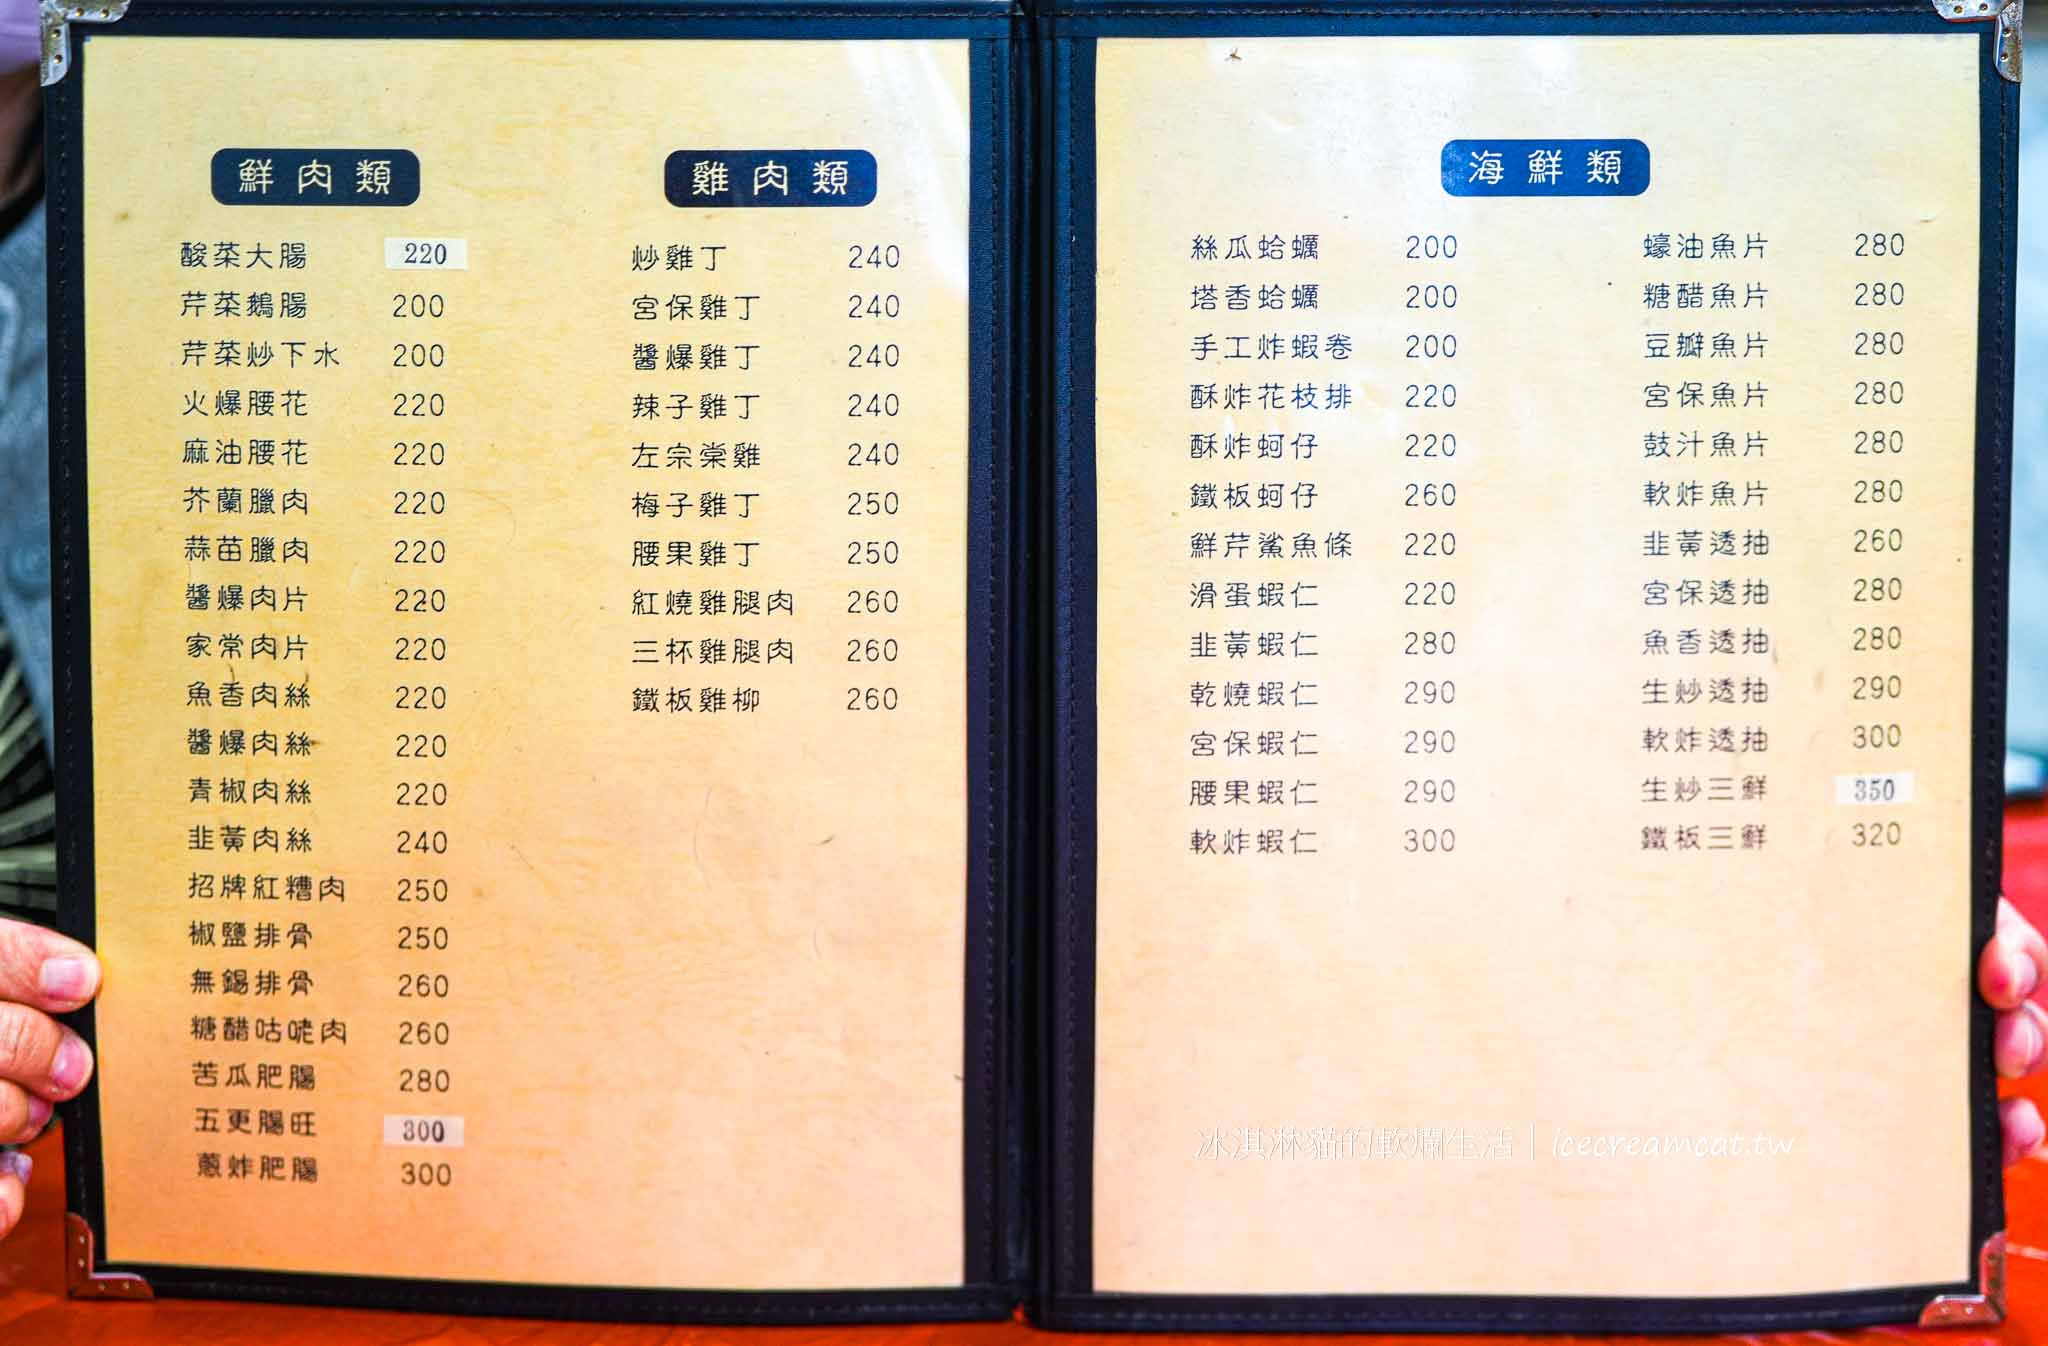 鮮肉類
酸菜大腸 220
芹菜鵝腸 200
芹菜炒下水 200
火爆腰花 220
麻油腰花 220
芥蘭臘肉 220
蒜苗臘肉 220
醬爆肉片 220
家常肉片 220
魚香肉絲 220
醬爆肉絲 220
青椒肉絲 220
韭黃肉絲 240
招牌紅糟肉 250
椒鹽排骨 250
無錫排骨 260
糖醋咕咾肉 260
苦瓜肥腸 280
五更腸旺 300
蔥炸肥腸 300
雞肉類
炒雞丁 240
宮保雞丁 240
醬爆雞丁 240
辣子雞丁 240
左宗棠雞 240
梅子雞丁 250
腰果雞丁 250
紅燒雞腿肉 260
三杯雞腿肉 260
鐵板雞柳 260
海鮮類
絲瓜蛤蠣 200
塔香蛤蠣 200
手工炸蝦卷 200
酥炸花枝排 220
酥炸蚵仔 220
鐵板蚵仔 260
鮮芹鯊魚條 220
滑蛋蝦仁 220
韭黃蝦仁 280
乾燒蝦仁 290
宮保蝦仁 290
腰果蝦仁 290
軟炸蝦仁 300
蠔油魚片 280
糖醋魚片 280
豆瓣魚片 280
宮保魚片 280
鼓汁魚片 280
軟炸魚片 280
韭黃透抽 260
宮保透抽 280
魚香透抽 280
生炒透抽 290
軟炸透抽 300
生炒三鮮 350
鐵板三鮮 320
冰淇淋貓的軟爛生活｜icecreamcat.tw